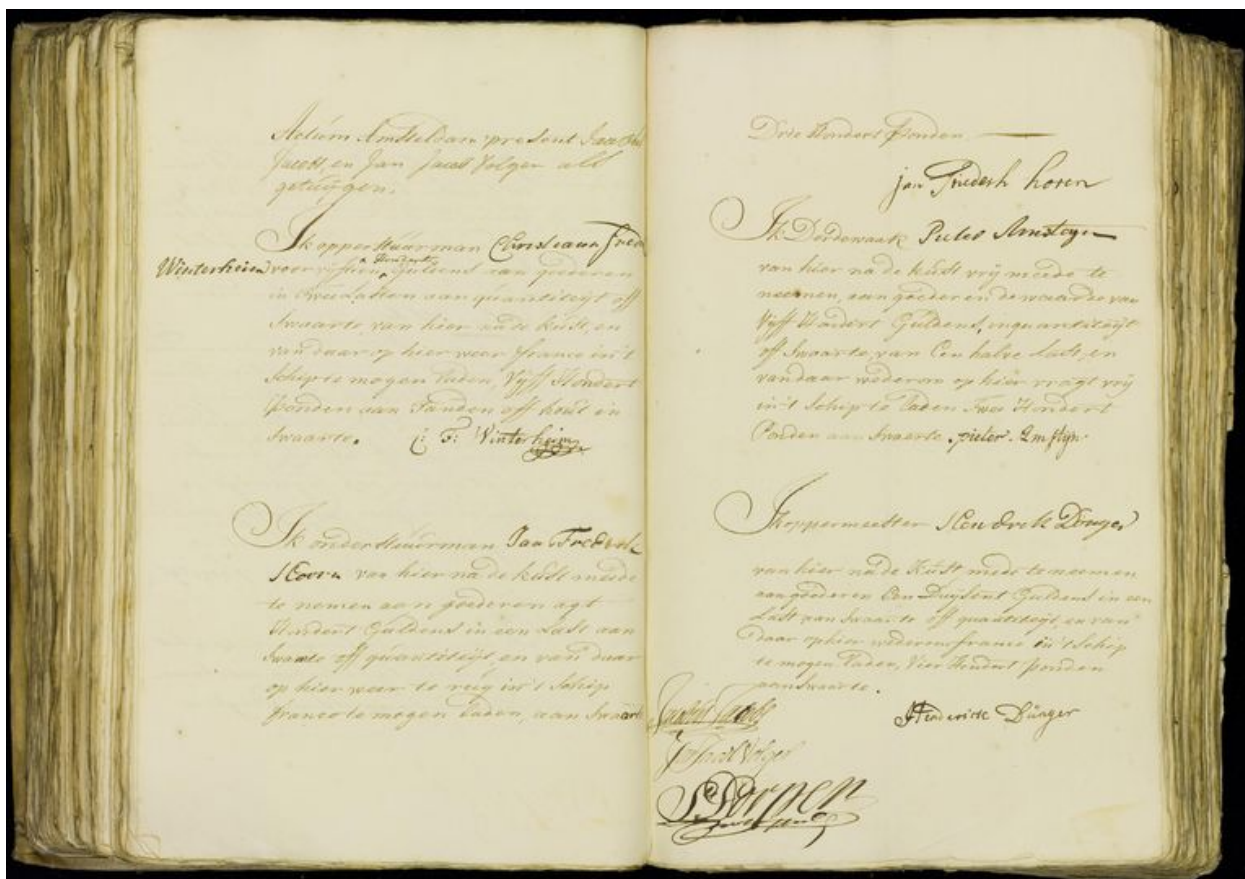 Actum Amsteldam present Jacobus
Jacobs, en Jan Jacob Volger als
getuijgen.
Ik opperstuurman Christiaan Fred
Winterheim voor vijftien Honderd Guldens aan goederen
in twee Lasten aan quantiteijt off
swaarte, van hier na de kust, en
van daar op hier weer franco in't
schip te mogen laden, Vijff Hondert
ponden aan Tanden off hout in
swaarte. C: F: Winterheim
Ik onderstuurman Jan Fredrik
Hoorn van hier na de kust meede
te nemen aan goederen agt
Hondert Guldens in een Last aan
swaarte off quantiteijt, en van daar
op hier weer te rug in't schip
franco te mogen laden, aan swaarte
Drie Hondert Ponden.
jan Friderich horen
Ik Derdewaak Pieter Amsteyn
van hier na de kust vrij meede te
neemen, aan goederen de waarde van
Vijff Hondert Guldens, in quantiteijt
off swaarte, van Een halve last, en
van daar wederom op hier vragt vrij
in't schip te laden Twee Hondert
Ponden aan swaarte. pieter. Amstyn.
Ik oppermeester Hendrik Dünger
van hier na de Kust mede te neemen
aan goederen Een Duysent Guldens in een
Last van swaarte off quantiteijt, en van
daar op hier wederom franco in't schip
te mogen laden, Vier Hondert ponden
aan swaarte.
Jacobus Jacobs
Henderick Dünger
Jan Jacob Volger